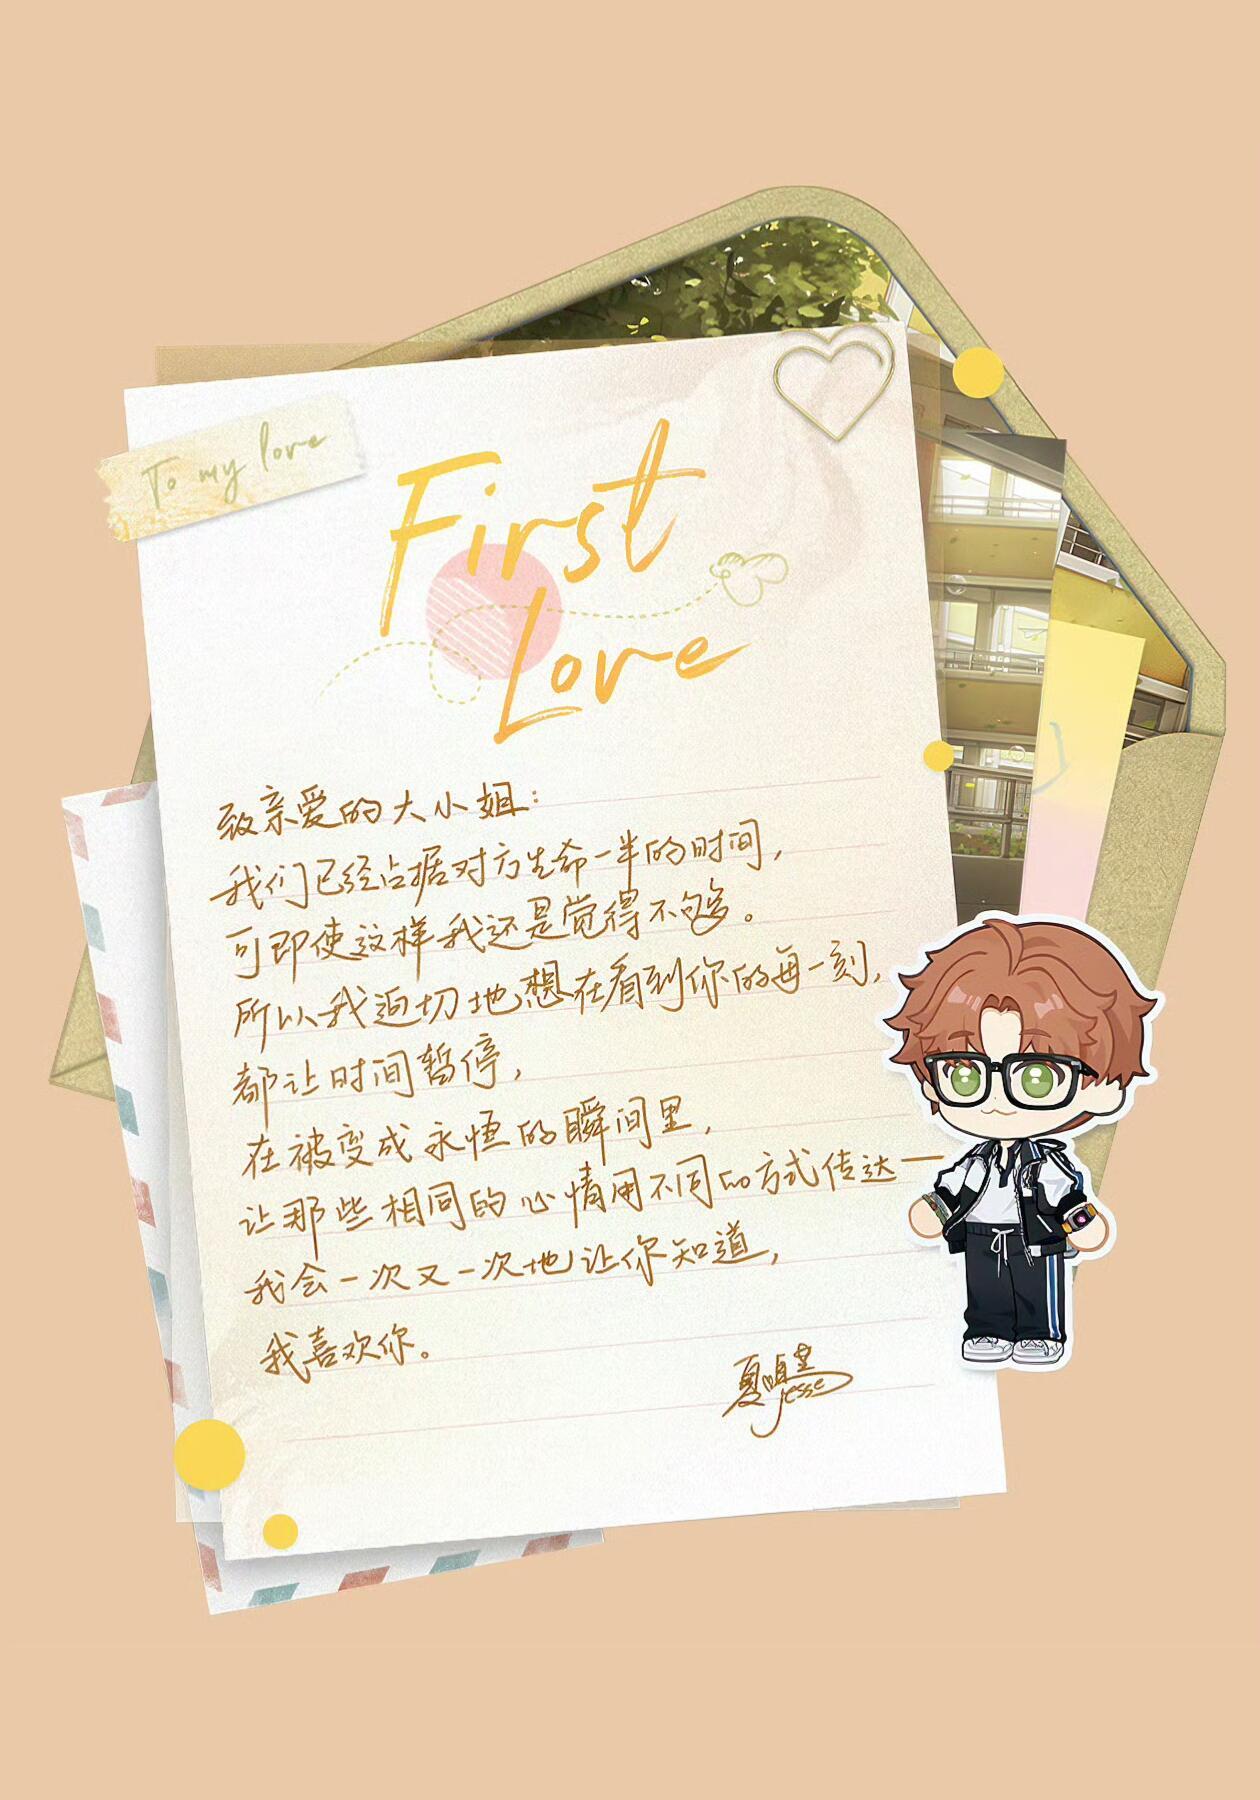 To my love
First
Love
致亲爱的大小姐：
我们已经占据对方生命一半的时间，
可即使这样我还是觉得不够。
所以我迫切地想在看到你的每一刻，
都让时间暂停，
在被变成永恒的瞬间里，
让那些相同的心情用不同的方式传达——
我会一次又一次地让你知道，
我喜欢你。
夏鸣星
Jesse